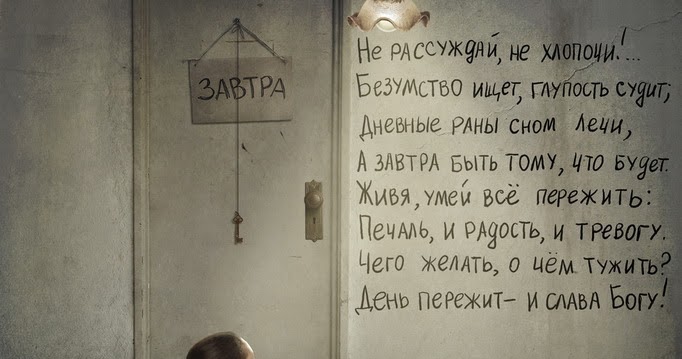 ЗАВТРА
Не рассуждай, не хлопочи!...
Безумство ищет, глупость судит;
Дневные раны сном лечи,
А завтра быть тому, что будет.
Живя, умей всё пережить:
Печаль, и радость, и тревогу.
Чего желать, о чём тужить?
День пережит- и слава Богу!